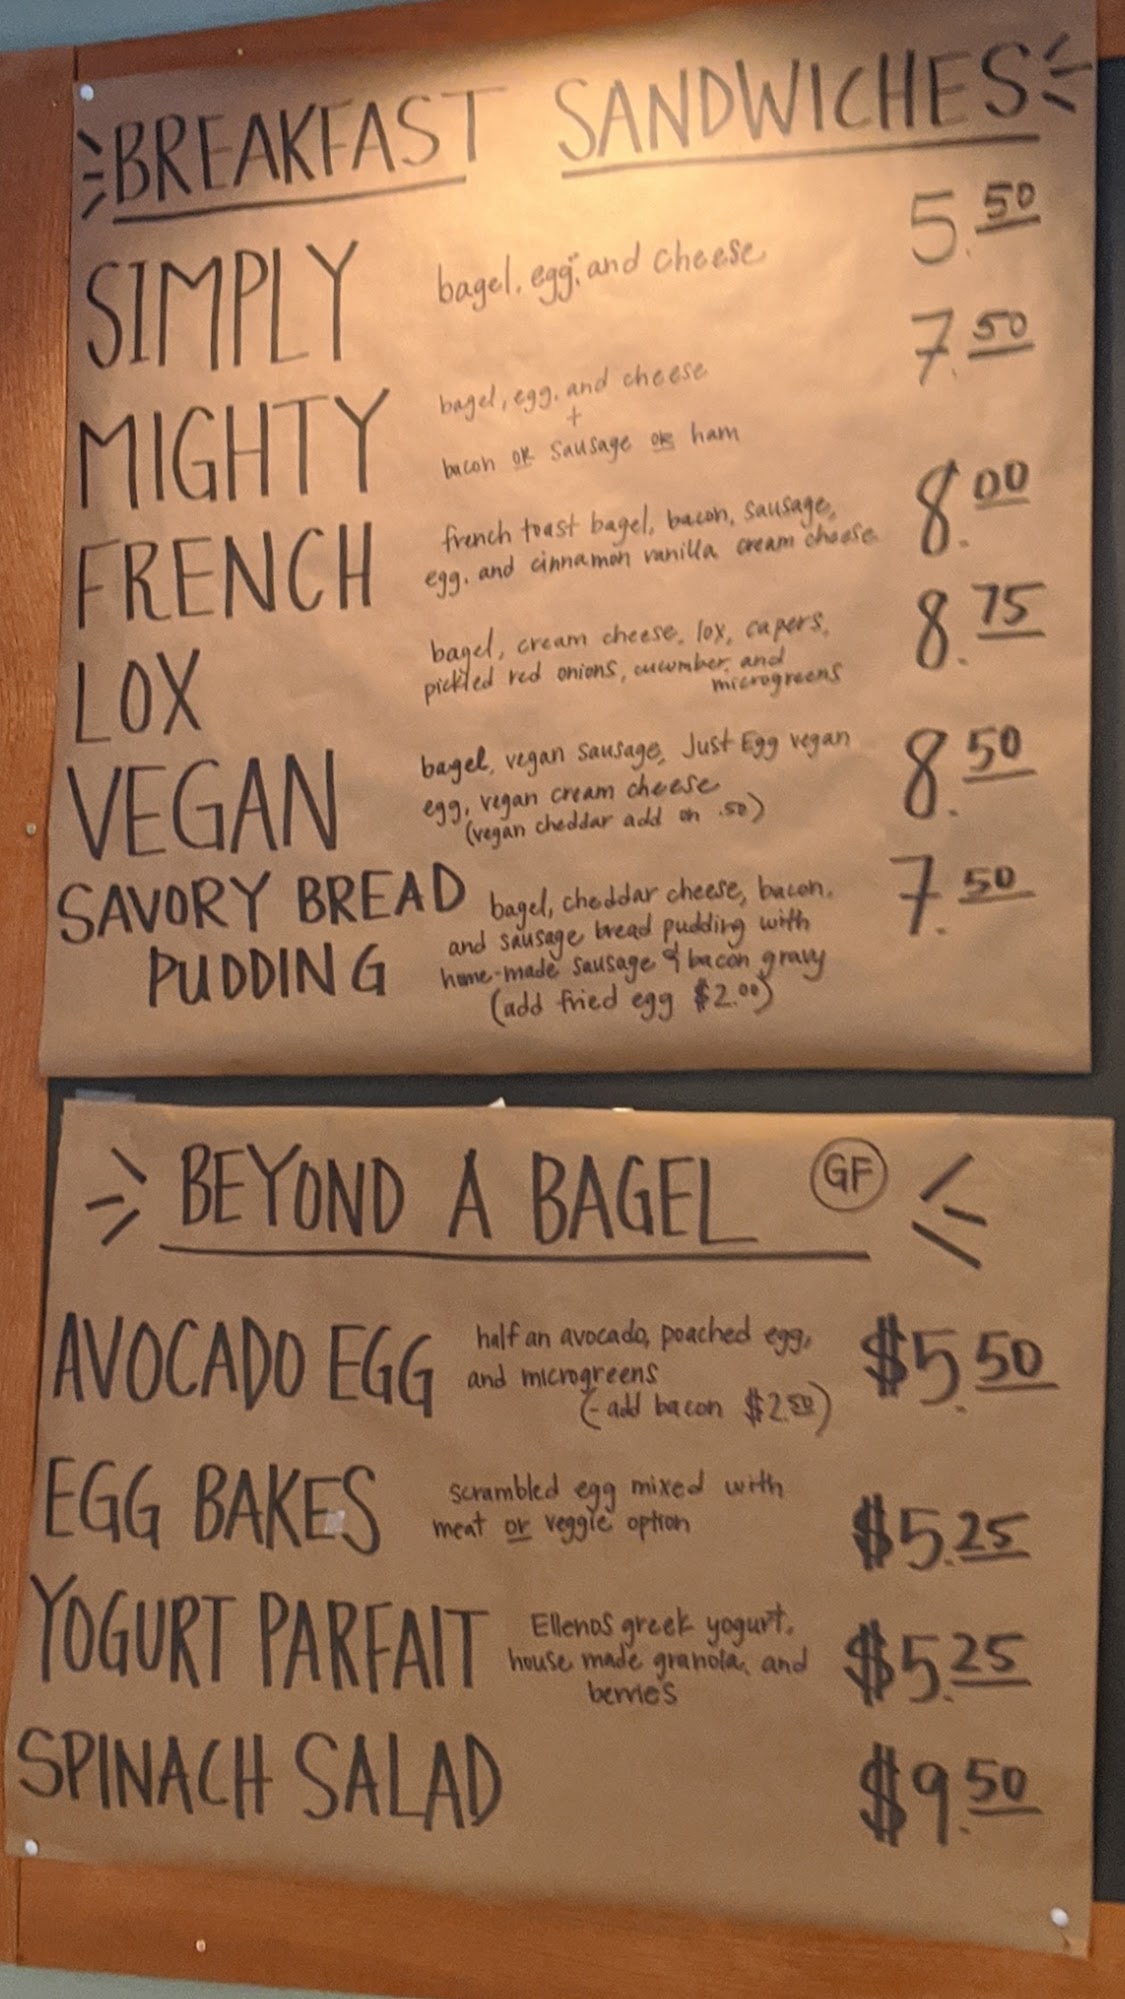 BREAKFAST SANDWICHES
SIMPLY bagel, egg, and cheese 5.50
MIGHTY bagel, egg, and cheese 7.50
+
bacon OR sausage OR ham
FRENCH french toast bagel, bacon, sausage, 8.00
egg, and cinnamon vanilla cream cheese
LOX bagel, cream cheese, lox, capers, 8.75
pickled red onions, cucumber, and
microgreens
VEGAN bagel, vegan sausage, Just Egg vegan 8.50
egg, vegan cream cheese
(vegan cheddar add on .50)
SAVORY BREAD bagel, cheddar cheese, bacon, 7.50
PUDDING and sausage bread pudding with
home-made sausage & bacon gravy
(add fried egg $2.00)
BEYOND A BAGEL GF
AVOCADO EGG half an avocado, poached egg, $5.50
and microgreens
(-add bacon $2.50)
EGG BAKES scrambled egg mixed with $5.25
meat or veggie option
YOGURT PARFAIT Ellenos greek yogurt, $5.25
house made granola, and
berries
SPINACH SALAD $9.50